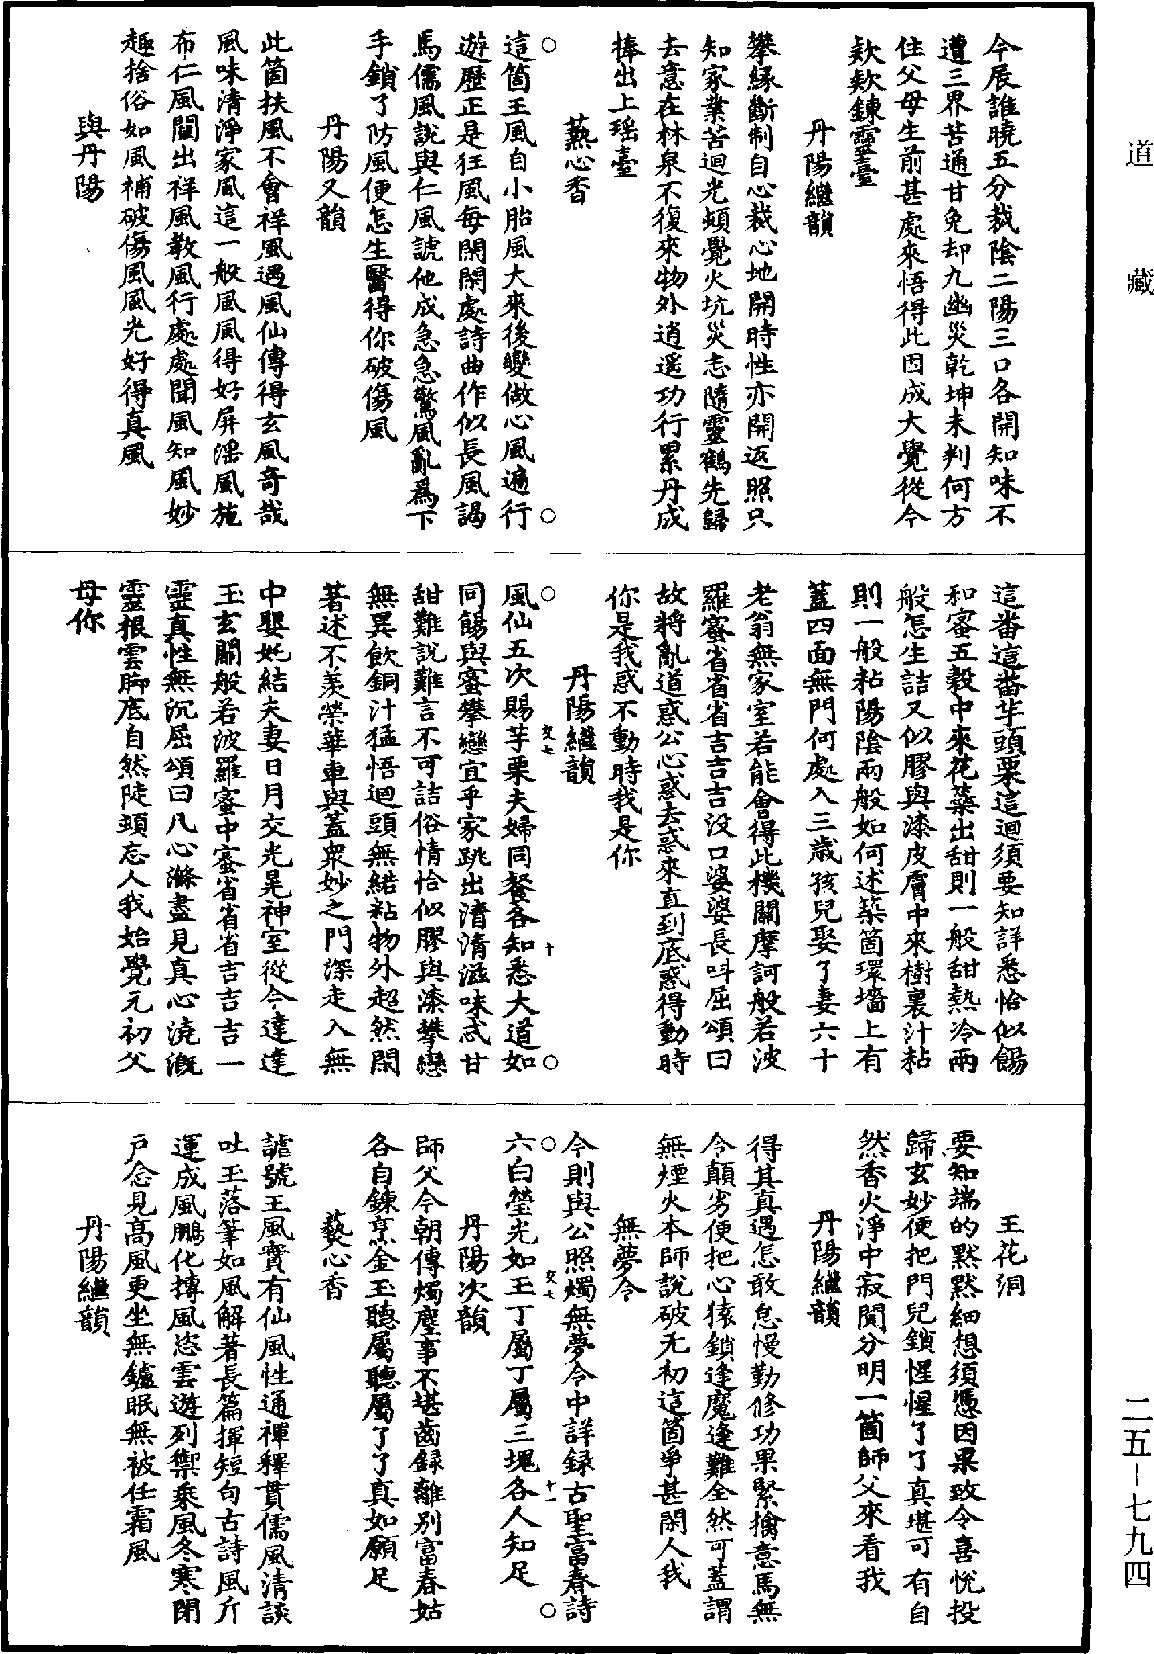 道藏
今辰誰曉五分裁陰二陽三口各開知味不
遭三界苦通甘免却九幽災乾坤未判何方
住父母生前甚處來悟得此因成大覺從今
欵欵鍊靈臺
丹陽繼韻
攀緣斷制自心裁心地開時性亦開返照只
知家業苦迴光頓覺火坑災志隨靈鶴先歸
去意在林泉不復來物外逍遥功行累丹成
捧出上瑶臺
爇心香
○這箇王風自小胎風大來後變做心風遍行○
遊歷正是狂風每閑閑處詩曲作似長風謁
馬儒風說與仁風諕他成急急驚風亂爲下
手鎖了防風便怎生醫得你破傷風
丹陽又韻
此箇扶風不會祥風遇風仙傳得玄風奇哉
風味清淨家風這一般風風得好屏淫風施
布仁風闡出祥風敎風行處處聞風知風妙
趣捨俗如風補破傷風風光好得真風
與丹陽
這番這番芋頭栗這迴須要知詳悉恰似餳
和蜜五穀中來花蘂出甜則一般甜熱冷兩
般怎生詰又似膠與漆皮膚中來樹裏汁粘
則一般粘陽陰兩般如何述築箇環墻上有
蓋四面無門何處入三歲孩兒娶了妻六十
老翁無家室若能會得此機關摩訶般若波
羅蜜省省省吉吉吉没口婆婆長呌屈頌曰
故將亂道惑公心惑去惑來直到底惑得動時
你是我惑不動時我是你
丹陽繼韻
○風仙五次賜芋栗夫婦同餐各知悉大道如○
同餳與蜜攀戀宜乎家跳出清清滋味忒甘
甜難說難言不可詰俗情恰似膠與漆攀戀
無異飲銅汁猛悟迴頭無緒粘物外超然閑
著述不羨榮華車與蓋衆妙之門深走入無
中娶妊結夫妻日月交光晃神室從今達達
玉玄關般若波羅蜜中蜜省省省吉吉吉一
靈真性無沉屈頌曰凡心滌盡見真心澆漑
靈根雲脚底自然陡頓忘人我始覺元初父
母你
玉花洞
要知端的黙黙細想須憑因果致令喜悅投
歸玄妙便把門兒鎖惺惺了了真堪可有自
然香火淨中寂闃分明一箇師父來看我
丹陽繼韻
得其真遇怎敢怠慢勤修功果緊擒意馬無
令顛劣便把心猿鎖逢魔逢難全然可蓋謂
無煙火本師說破无初這箇爭甚閑人我
無夢令
今則與公照燭無夢令中詳録古聖富春詩
○六白瑩光如玉丁屬丁屬三塊各人知足○
丹陽次韻
師父今朝傳燭塵事不堪齒録離别富春姑
各自鍊烹金玉聽屬聽屬了了真如願足
爇心香
諕號王風實有仙風性通禪釋貫儒風清談
吐玉落筆如風解著長篇揮短句古詩風斤
運成風鵬化摶風恣雲遊列禦乘風冬寒閉
戸念見高風更坐無鑪眠無被任霜風
丹陽繼韻
二五－七九四